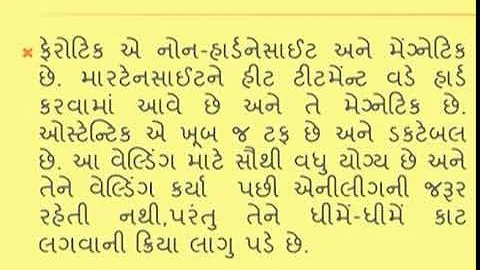 ફેરોટિક એ નોન-હાર્ડનેસાઈટ અને મેંગ્નેટિક
છે. મારટેનસાઈટને હીટ ટીટમેંન્ટ વડે હાર્ડ
કરવામાં આવે છે અને તે મેગ્નેટિક છે.
ઓસ્ટેન્ટિક એ ખૂબ જ ટફ છે અને ડકટેબલ
છે. આ વેલ્ડિંગ માટે સૌથી વધુ યોગ્ય છે અને
તેને વેલ્ડિંગ કર્યા પછી એનીલીગની જરૂર
રહેતી નથી,પરંતુ તેને ધીમેં-ધીમેં કાટ
લગવાની ક્રિયા લાગુ પડે છે.